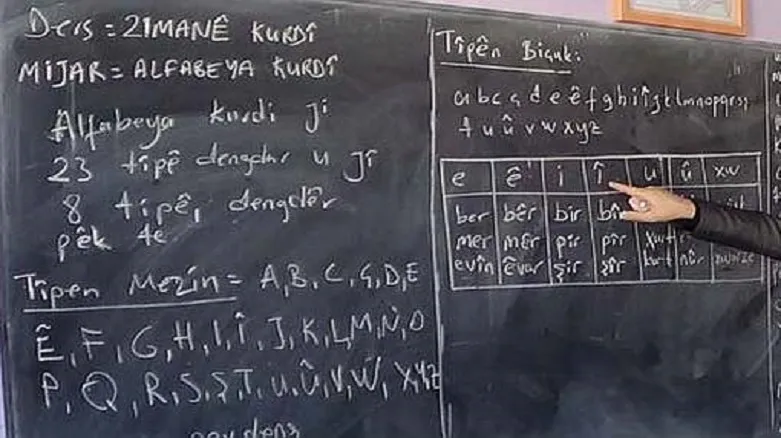 Ders = ZIMANÊ KURDÎ
MIJAR = ALFABEYA KURDÎ
Alfabeya kurdi ji
23 tîpê dengdar u jî
8 tîpê, dengdêr
pêk te
Tîpen Mezin = A, B, C, Ç, D, E
Ê, F, G, H, I, Î, J, K, L, M, N, O
P, Q, R, S, Ş, T, U, Û, V, W, X, Y, Z
Tîpên Biçuk:
a b c ç d e ê f g h i î j k l m n o p q r s ş
t u û v w x y z
e ê i î u û xw
ber bêr bir bîr
mer mêr pir pîr
evîn êvar şir şîr kurt nûr